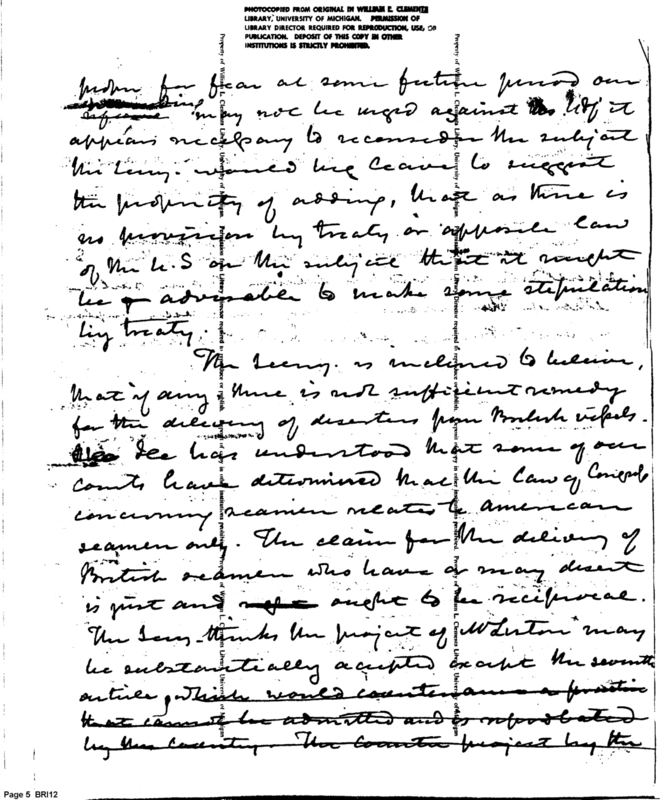 PHOTOCOPIED FROM ORIGINAL IN WILLIAM L. CLEMENTS
LIBRARY, UNIVERSITY OF MICHIGAN. PERMISSION OF
LIBRARY DIRECTOR REQUIRED FOR REPRODUCTION, USE, OR
PUBLICATION. DEPOSIT OF THIS COPY IN OTHER
INSTITUTIONS IS STRICTLY PROHIBITED.
proper for fear at some future period our
may not be urged against us if it
appears necessary to reconsider the subject
the Secy. would beg leave to suggest
the propriety of adding, that as there is
no provision by treaty or apposite law
of the U.S on the subject that it might
be advisable to make some stipulation
by treaty.
The Secry. is inclined to believe,
that if any there is not sufficient remedy
for the delivery of deserters from British vessels.
He has understood that some of our
courts have determined that the Law of Congress
concerning seamen relates to American
seamen only. The claim for the delivery of
British seamen who have or may desert
is just and ought to be reciprocal.
The Secry. thinks the project of Mr Liston may
be substantially accepted except the seventh
article, which would countenance a practice
that cannot be admitted and is reprobated
by this Country. The counter project by the
Page 5 BRI12